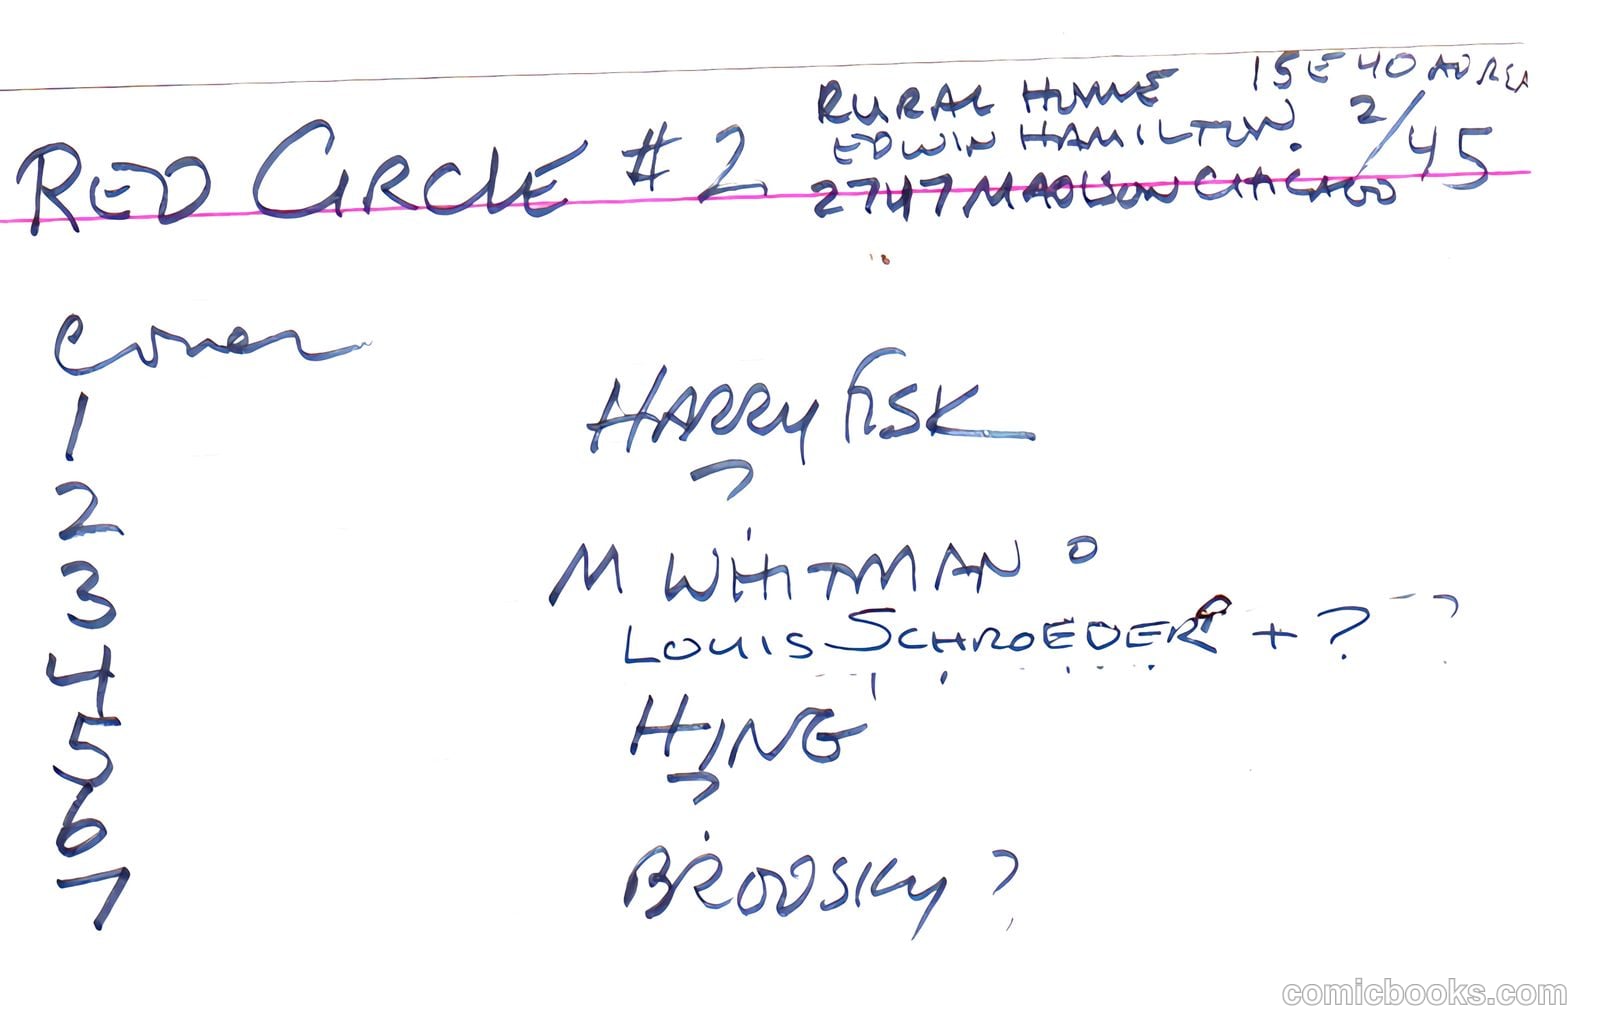 RED CIRCLE #2
RURAL HOME 15E 40
EDWIN HAMILTON. 2/45
2747 MADISON CHICAGO
Cover
1 HARRY FISK
2 ?
3 M WHITMAN
4 LOUIS SCHROEDER + ? ?
5 HING
6 ?
7 BRODSKY ?
comicbooks.com